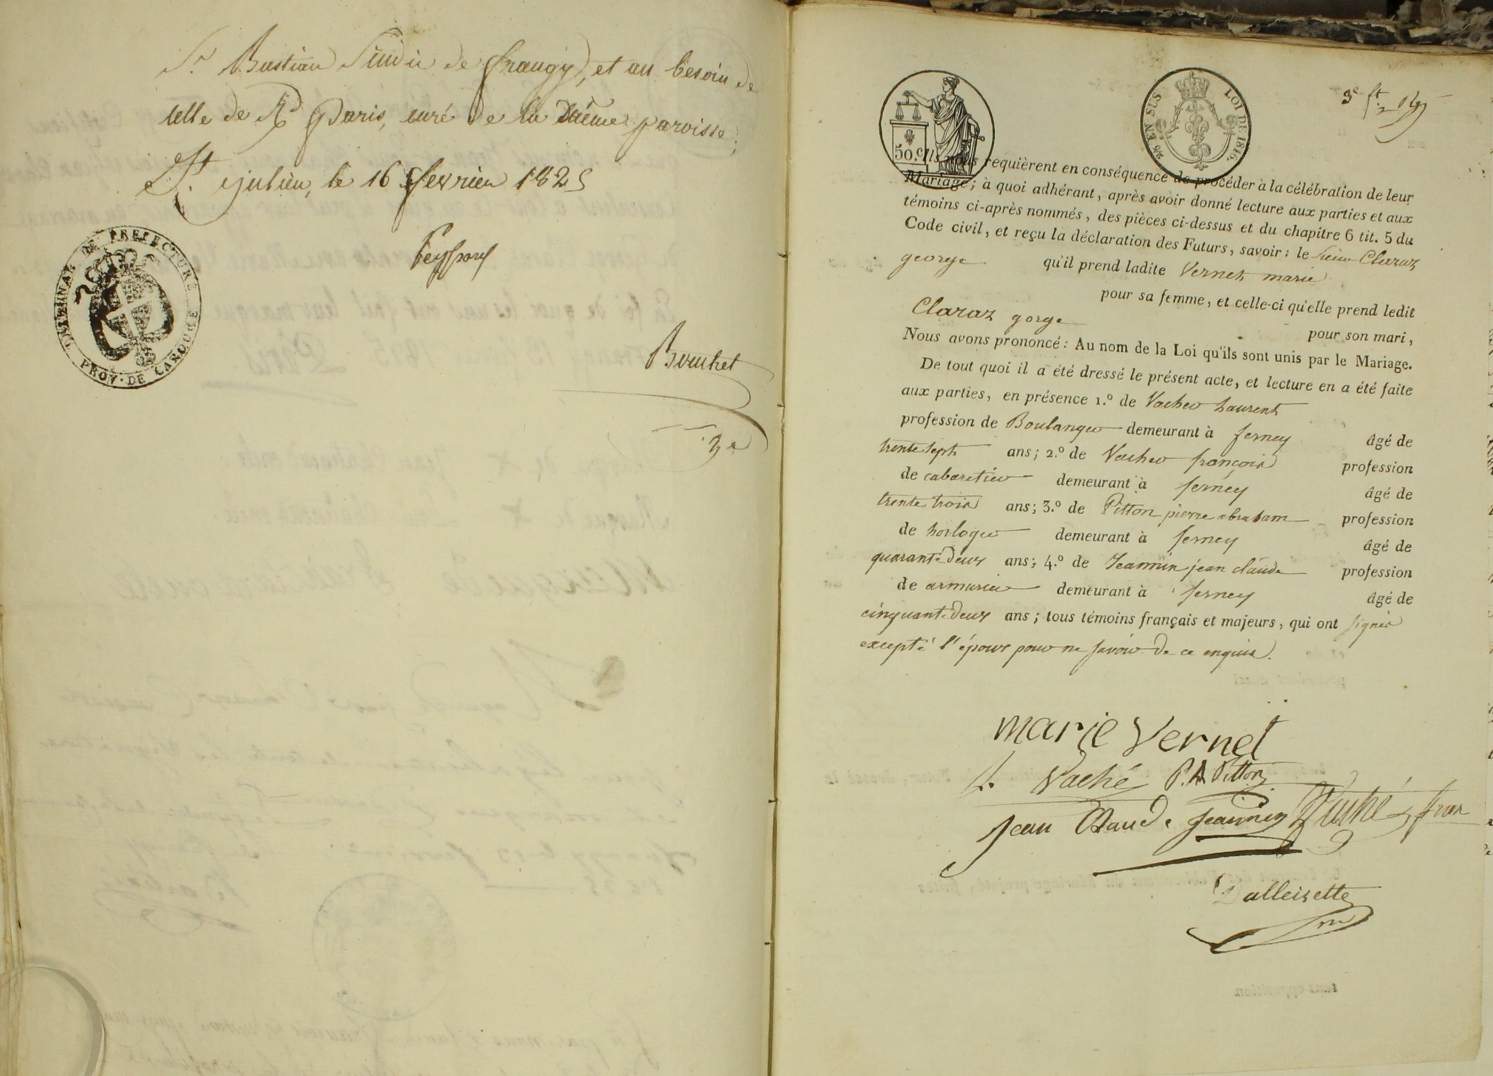 Sr. Bastian Sindic de frangy, et au besoin de
celle de Rd. Paris, curé de la même paroisse;
St. julien, le 16 fevrier 1825
INTENDANZA DI PREFECTURE
PROV. DE CAROUGE
Bouchet
50.c
25 EN SUS LOI DE 1816.
Ils nous requièrent en conséquence de procéder à la célébration de leur
Mariage; à quoi adhérant, après avoir donné lecture aux parties et aux
témoins ci-après nommés, des pièces ci-dessus et du chapitre 6 tit. 5 du
Code civil, et reçu la déclaration des Futurs, savoir: le sieur Claraz
george qu'il prend ladite Vernet marie
pour sa femme, et celle-ci qu'elle prend ledit
Claraz gorge pour son mari,
Nous avons prononcé: Au nom de la Loi qu'ils sont unis par le Mariage.
De tout quoi il a été dressé le présent acte, et lecture en a été faite
aux parties, en présence 1.º de Vacher Laurent
profession de Boulanger demeurant à ferney âgé de
trente sept ans; 2.º de Vacher françois profession
de cabaretier demeurant à ferney âgé de
trente trois ans; 3.º de Pitton pierre abraham profession
de horloger demeurant à ferney âgé de
quarante deux ans; 4.º de Jeannin jean claude profession
de armurier demeurant à ferney âgé de
cinquante deux ans; tous témoins français et majeurs, qui ont signés
excepté l'époux pour ne savoir de ce enquis.
marie Vernet
L. Vaché P. A Pitton
jean Claude jeannin Vaché fran